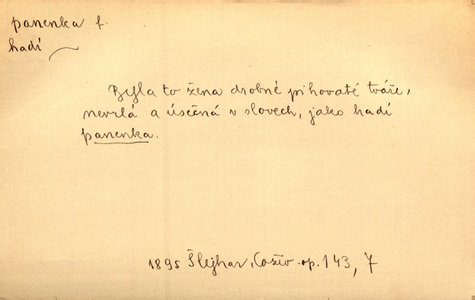 panenka f.
hadí
Byla to žena drobné pihovaté tváře,
nevrlá a úsečná v slovech, jako hadí
panenka.
1895 Šlejhar, Co živ. op. 143, 7